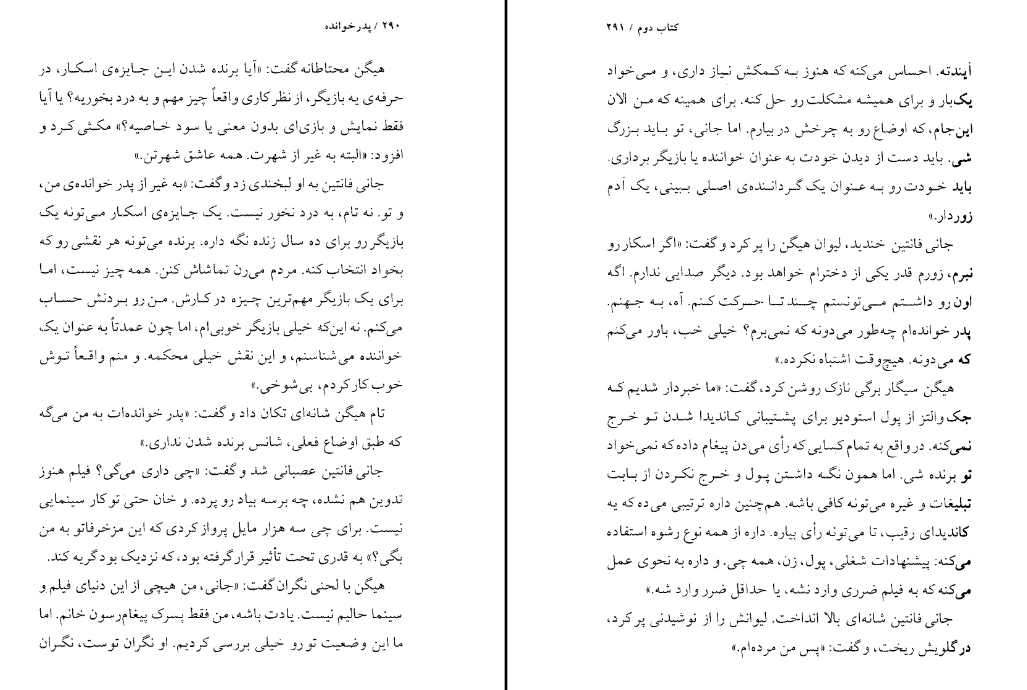 ۲۹۰ / پدرخوانده
هیگن محتاطانه گفت: «آیا برنده شدن ایـن جـایزه‌ی اسکـار، در
حرفه‌ی یه بازیگر، از نظر کاری واقعاً چیز مهم و به درد بخوریه؟ یا آیا
فقط نمایش و بازی‌ای بدون معنی یا سود خاصیه؟» مکثی کرد و
افزود: «البته به غیر از شهرت. همه عاشق شهرتن.»
جانی فانتین به او لبخندی زد و گفت: «به غیر از پدر خوانده‌ی من،
و تو. نه تام، به درد نخور نیست. یک جـایزه‌ی اسکـار مـی‌تونه یک
بازیگر رو برای ده سال زنده نگه داره. برنده می‌تونه هر نقشی رو که
بخواد انتخاب کنه. مردم می‌رن تماشاش کنن. همه چیز نیست، امـا
برای یک بازیگر مهم‌ترین چـیزه در کـارش. مـن رو بـردنش حساب
می‌کنم. نه این‌که خیلی بازیگر خوبی‌ام، اما چون عمدتاً به عنوان یک،
خواننده می‌شناسنم، و این نقش خیلی محکمه. و منم واقـعاً تـوش
خوب کار کردم، بی‌شوخی.»
تام هیگن شانه‌ای تکان داد و گفت: «پدر خوانده‌ات به من می‌گه
که طبق اوضاع فعلی، شانس برنده شدن نداری.»
جانی فانتین عصبانی شد و گفت: «چی داری می‌گی؟ فیلم هنوز
تدوین هم نشده، چه برسه بیاد رو پرده. و خان حتی تو کار سینمایی
نیست. برای چی سه هزار مایل پرواز کردی که این مزخرفاتو به من
بگی؟» به قدری تحت تأثیر قرار گرفته بود، که نزدیک بود گریه کند.
هیگن با لحنی نگران گفت: «جانی، من هیچی از این دنیای فیلم و
سینما حالیم نیست. یادت باشه، من فقط پسرک پیغام‌رسون خانم. اما
ما این وضعیت تو رو خیلی بررسی کردیم. او نگران توست، نگـران
کتاب دوم / ۲۹۱
آیندته. احساس می‌کنه که هنوز بـه کـمکش نیـاز داری، و مـی‌خواد
یک‌بار و برای همیشه مشکلت رو حل کنه. برای همینه که مـن الان
این‌جام، که اوضاع رو به چرخش در بیارم. اما جانی، تو بـاید بـزرگ
شی. باید دست از دیدن خودت به عنوان خواننده یا بازیگر برداری.
باید خـودت رو بـه عـنوان یک گـردانـنده‌ی اصـلی بـبینی، یک آدم
زوردار.»
جانی فانتین خندید، لیوان هیگن را پر کرد و گفت: «اگر اسکار رو
نبرم، زورم قدر یکی از دخترام خواهد بود. دیگر صدایی ندارم. اگه
اون رو داشـتم مـی‌تونستم چـند تـا حـرکت کـنم. آه، بـه جـهنم.
پدر خوانده‌ام چه‌طور می‌دونه که نمی‌برم؟ خیلی خب، باور می‌کنم
که می‌دونه. هیچ‌وقت اشتباه نکرده.»
هیگن سیگار برگی نازک روشن کرد، گفت: «ما خبردار شدیم کـه
جک والتز از پول استودیو برای پشـتیبانی کـاندیدا شـدن تـو خـرج
نمی‌کنه. در واقع به تمام کسایی که رأی می‌دن پیغام داده که نمی‌خواد
تو برنده شی. اما همون نگـه داشتن پـول و خـرج نکـردن از بـابت
تبلیغات و غیره می‌تونه کافی باشه. هم‌چنین داره ترتیبی می‌ده که یه
کاندیدای رقیب، تا می‌تونه رأی بیاره. داره از همه نوع رشوه استفاده
می‌کنه: پیشنهادات شغلی، پول، زن، همه چی. و داره به نحوی عمل
می‌کنه که به فیلم ضرری وارد نشه، یا حداقل ضرر وارد شه.»
جانی فانتین شانه‌ای بالا انداخت. لیوانش را از نوشیدنی پر کرد،
در گلویش ریخت، و گفت: «پس من مرده‌ام.»